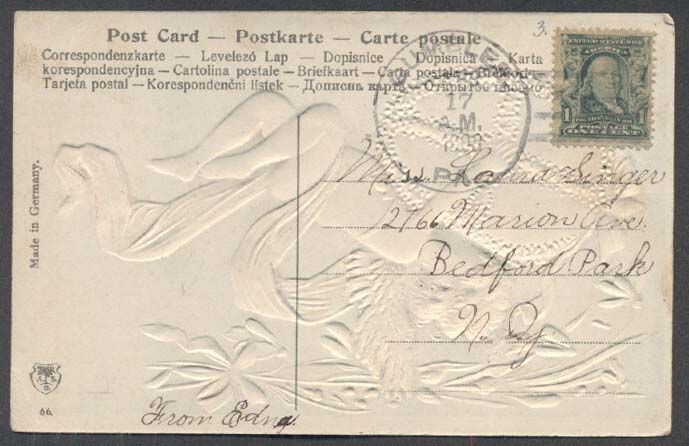 Post Card — Postkarte — Carte postale
Correspondenzkarte — Levelező Lap — Dopisnice — Dopisnica — Karta
korespondencyjna — Cartolina postale — Briefkaart — Carta postale — Brefkort
Tarjeta postal — Korespondenčni listek — Дописна карта — Открытое письмо
3.
17
A.M.
PA.
UNITED STATES OF AMERICA
1
1
POSTAGE
ONE CENT
Miss Laura Singer
2766 Marion Ave.
Bedford Park
N. Y.
Made in Germany.
66.
From Edna